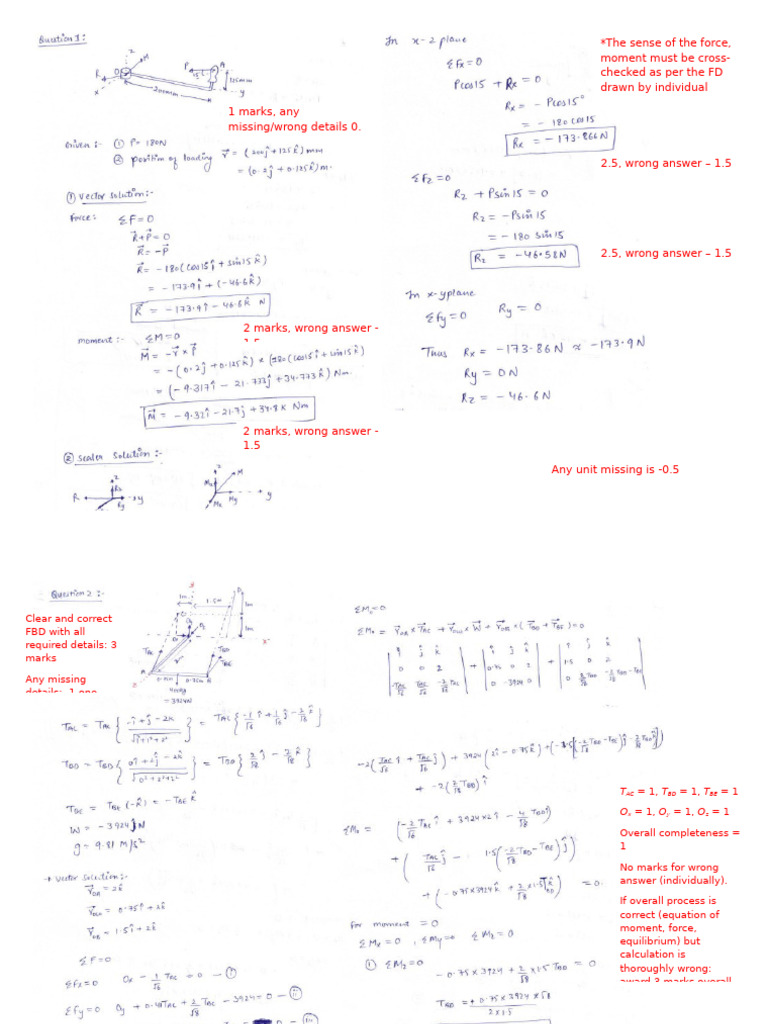 Question 1:
z
R O M P A
15°
125mm
x 200mm y
1 marks, any
missing/wrong details 0.
Given :- ① P = 180N
② position of loading r⃗ = (200ĵ + 125k̂) mm
= (0.2ĵ + 0.125k̂) m.
① Vector solution:-
Force: ΣF = 0
R⃗ + P⃗ = 0
R⃗ = -P⃗
R⃗ = -180(cos15 î + sin15 k̂)
= -173.9î + (-46.6k̂)
R⃗ = -173.9î - 46.6k̂ N
2 marks, wrong answer -
moment :- ΣM = 0
M⃗ = -r⃗ × P⃗
= -(0.2ĵ + 0.125k̂) × (180(cos15î + sin15k̂)
= (-9.317î - 21.733ĵ + 34.773k̂) Nm.
M⃗ = -9.32î - 21.7ĵ + 34.8k Nm
2 marks, wrong answer -
1.5
② scaler solution :-
z z
R Rz Ry y
Mz M My y Mx
In x-z plane
ΣFx = 0
Pcos15 + Rx = 0
Rx = -Pcos15°
= -180cos15
Rx = -173.866N
*The sense of the force,
moment must be cross-
checked as per the FD
drawn by individual
2.5, wrong answer – 1.5
ΣFz = 0
Rz + Psin15 = 0
Rz = -Psin15
= -180 sin15
Rz = -46.58N
2.5, wrong answer – 1.5
In x-y plane
ΣFy = 0 Ry = 0
Thus Rx = -173.86N ≈ -173.9N
Ry = 0N
Rz = -46.6N
Any unit missing is -0.5
Question 2 :-
Clear and correct
FBD with all
required details: 3
marks
Any missing
1m 1.5m
1m
1m
TAC TBD TBE
A B
0.75m 0.75m
400kg
= 3924N
TAC = TAC { -î + ĵ - 2k / √(1² + 1² + 2²) } = TAC { -1/√6 î + 1/√6 ĵ - 2/√6 k̂ }
TBD = TBD { 0î + 2ĵ - 2k̂ / √(0² + 2² + 2²) } = TBD { 2/√8 ĵ - 2/√8 k̂ }
TBE = TBE (-k̂) = -TBE k̂
W = -3924ĵ N
g = 9.81 m/s²
→ Vector solution :-
r⃗OA = 2k̂
= 0.75î + 2k̂
r⃗OB = 1.5î + 2k̂
ΣF = 0
ΣFx = 0 Ox - 1/√6 TAC = 0 - ①
ΣFy = 0 Oy + 0.41TAC + 2/√8 TBD - 3924 = 0 - ②
ΣMo = 0
ΣMo = r⃗OA × T⃗AC + r⃗OW × W⃗ + r⃗OB × (T⃗BD + T⃗BE) = 0
| î ĵ k̂ | + | î ĵ k̂ | + | î ĵ k̂ |
| 0 0 2 | | 0.75 0 2 | | 1.5 0 2 |
| -TAC/√6 TAC/√6 -2/√6 TAC | | 0 -3924 0 | | 0 2/√8 TBD -2/√8 TBD - TBE |
-2(TAC/√6 î + TAC/√6 ĵ) + 3924(2î - 0.75k̂)
+ -2(2/√8 TBD)î
ΣMo = (-2/√6 TAC î + 3924×2î - 4/√8 TBD î)
+ (TAC/√6 ĵ - 1.5(-2/√8 TBD - TBE)ĵ)
+ (-0.75×3924k̂ + 2/√8 ×1.5 TBD k̂) = 0.
For moment = 0
ΣMx = 0 , ΣMy = 0 ΣMz = 0
① ΣMz = 0
-0.75×3924 + 2/√8 ×1.5 TBD = 0
TBD = +0.75×3924×√8 / 2×1.5
TAC = 1, TBD = 1, TBE = 1
Ox = 1, Oy = 1, Oz = 1
Overall completeness =
1
No marks for wrong
answer (individually).
If overall process is
correct (equation of
moment, force,
equilibrium) but
calculation is
thoroughly wrong:
award 3 marks overall